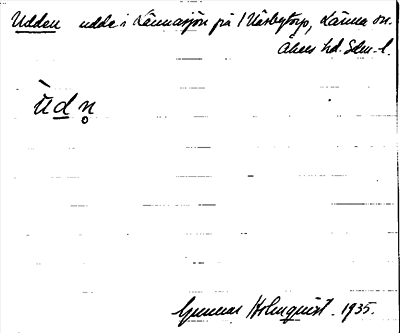 Udden udde i Lännasjön på 1 Väsbytorp, Länna sn.
Åkers hd. Sdm. l.
ùdn̥
Gunnar Holmquist. 1935.